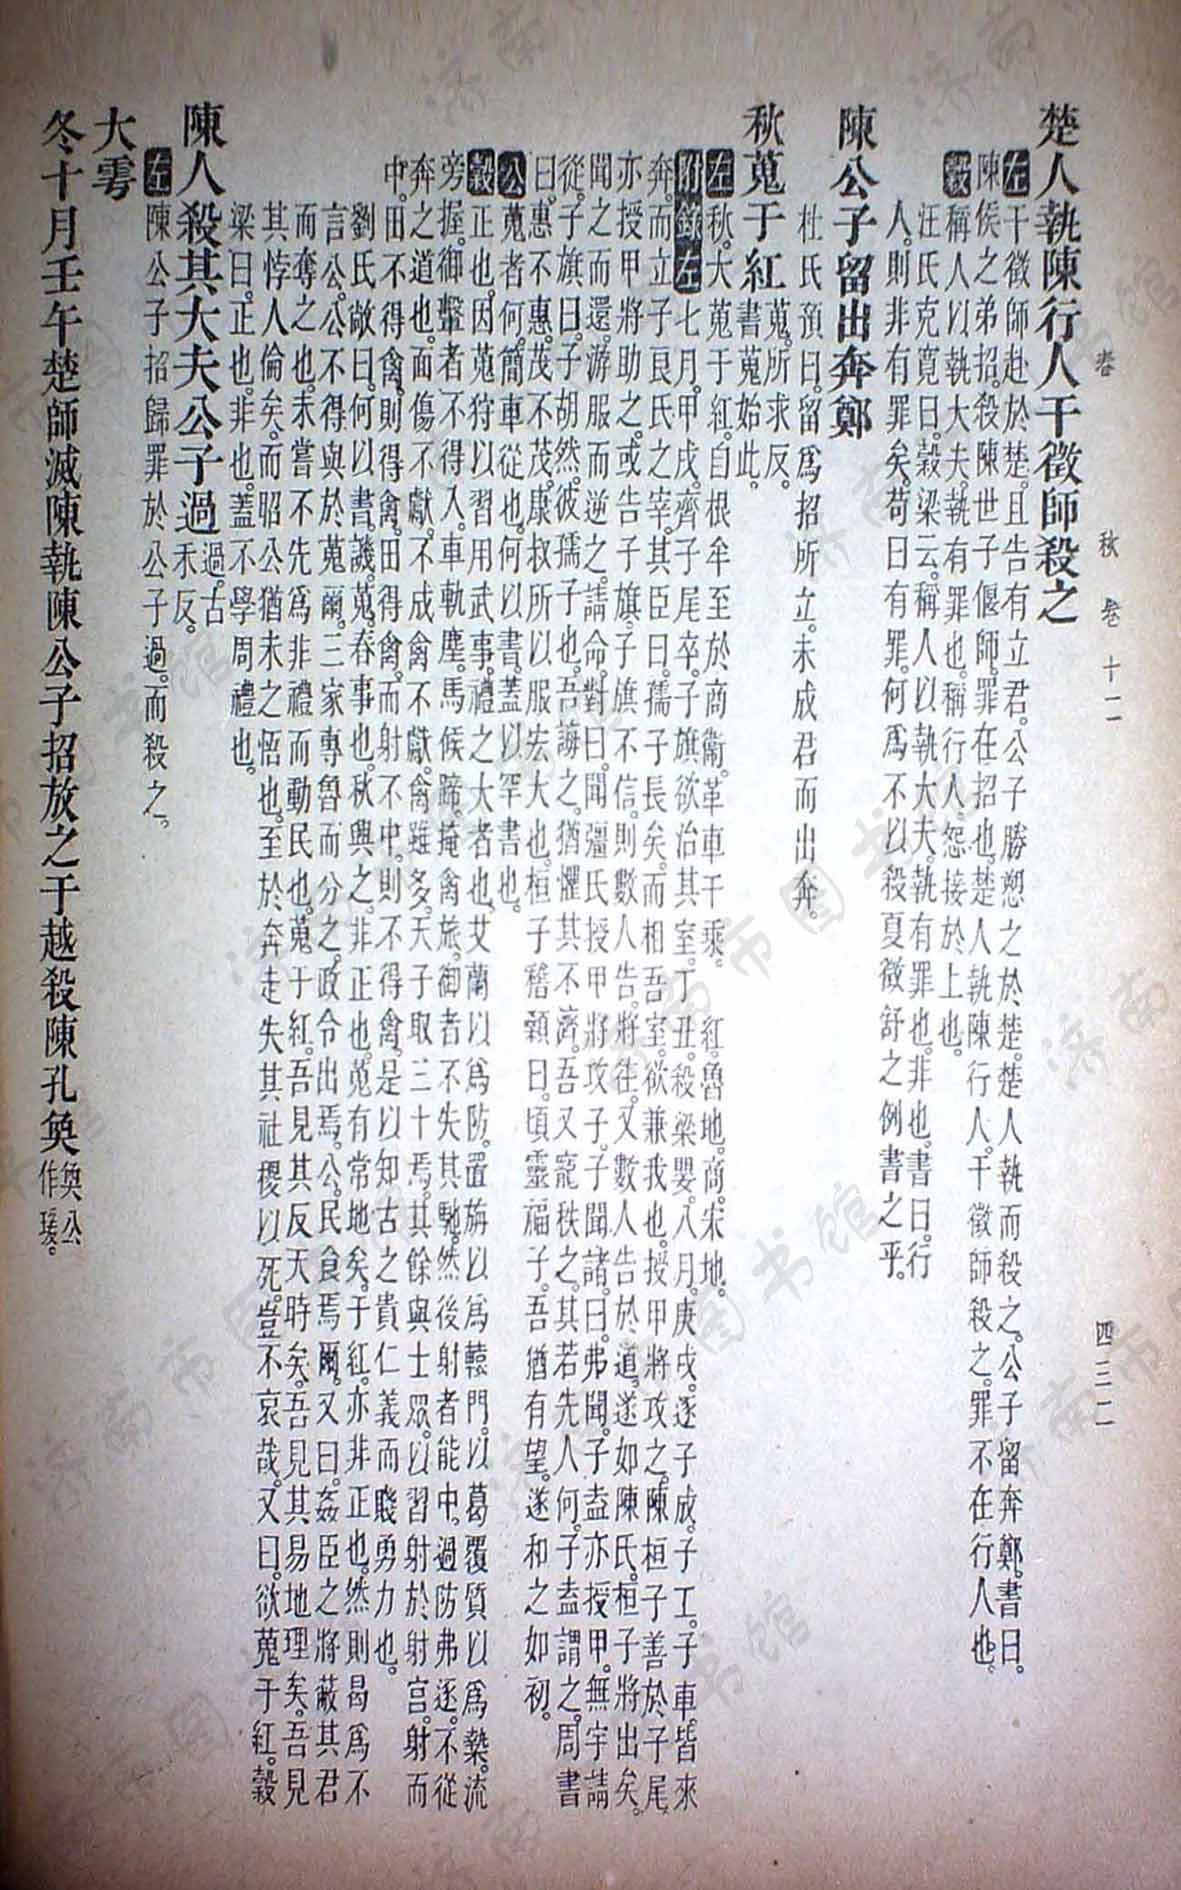 春秋 卷十一 四三二
楚人執陳行人干徵師殺之
左干徵師赴於楚。且告有立君。公子勝愬之於楚。楚人執而殺之。公子留奔鄭。書曰。
陳侯之弟招。殺陳世子偃師。罪在招也。楚人執陳行人。干徵師殺之。罪不在行人也。
穀稱人以執大夫。執有罪也。稱行人。怨接於上也。
汪氏克寬曰。穀梁云。稱人以執大夫。執有罪也。非也。書曰。行
人。則非有罪矣。苟曰有罪。何爲不以殺夏徵舒之例書之乎。
陳公子留出奔鄭
杜氏預曰。留爲招所立。未成君而出奔。
秋蒐于紅 蒐。所求反。書蒐始此。
左秋。大蒐于紅。自根牟至於商衞。革車千乘。 紅。魯地。商。宋地。
附錄左七月。甲戌。齊子尾卒。子旗欲治其室。丁丑。殺梁嬰。八月。庚戌。逐子成。子工。子車。皆來
奔。而立子良氏之宰。其臣曰。孺子長矣。而相吾室。欲兼我也。授甲將攻之。陳桓子善於子尾。
亦授甲將助之。或告子旗。子旗不信。則數人告。將往。又數人告於道。遂如陳氏。桓子將出矣。
聞之而還。游服而逆之。請命。對曰。聞彊氏授甲將攻子。子聞諸。曰。弗聞。子盍亦授甲。無宇請
從。子旗曰。子胡然。彼孺子也。吾誨之。猶懼其不濟。吾又寵秩之。其若先人何。子盍謂之。周書
曰。惠不惠。茂不茂。康叔所以服宏大也。桓子稽顙曰。頃靈福子。吾猶有望。遂和之如初。
公蒐者何。簡車徒也。何以書。蓋以罕書也。
穀正也。因蒐狩以習用武事。禮之大者也。艾蘭以爲防。置旃以爲轅門。以葛覆質以爲槷。流
旁握。御轚者不得入。車軌塵。馬候蹄。掩禽旅。御者不失其馳。然後射者能中。過防弗逐。不從
奔之道也。面傷不獻。不成禽不獻。禽雖多。天子取三十焉。其餘與士眾。以習射於射宮。射而
中。田不得禽。則得禽。田得禽。而射不中。則不得禽。是以知古之貴仁義而賤勇力也。
劉氏敞曰。何以書。譏。蒐。春事也。秋興之。非正也。蒐有常地矣。于紅。亦非正也。然則曷爲不
言公。公不得與於蒐爾。三家專魯而分之。政令出焉。公。民食焉爾。又曰。姦臣之將蔽其君
而奪之也。未嘗不先爲非禮而動民也。蒐于紅。吾見其反天時矣。吾見其易地理矣。吾見
其悖人倫矣。而昭公猶未之悟也。至於奔走失其社稷以死。豈不哀哉。又曰。欲蒐于紅。穀
梁曰。正也。非也。蓋不學周禮也。
陳人殺其大夫公子過 過。古禾反。
左陳公子招歸罪於公子過。而殺之。
大雩
冬十月壬午楚師滅陳執陳公子招放之于越殺陳孔奐 奐公作瑗。